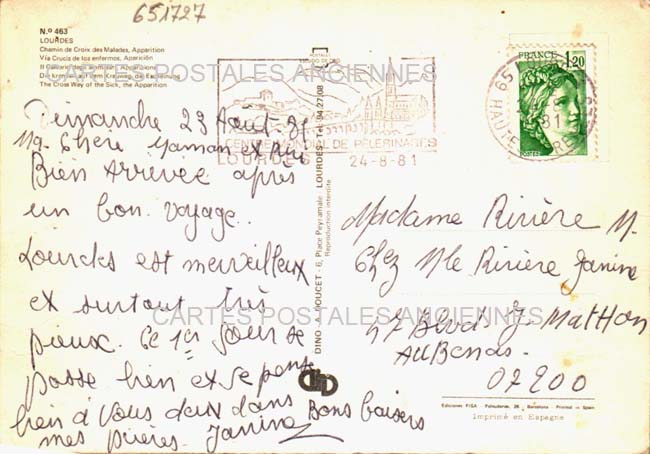 651727
N.º 463
LOURDES
Chemin de Croix des Malades, Apparition
Vía Crucis de los enfermos, Aparición
The Cross Way of the Sick, the Apparition
CARTES POSTALES ANCIENNES
FRANCE
1,20
POSTES
CENTRE MONDIAL DE PÈLERINAGES
LOURDES 24-8-81
Dimanche 23 Août 81
Ma Chère Maman
Bien Arrivée après
un bon voyage..
Lourdes est merveilleux
et surtout très
pieux. Ce 1er jour se
passe bien et je pense
bien à vous deux dans
mes prières. Janine
Bons baisers
DINO - A. DOUCET - 6, Place Peyramale - LOURDES - Tel. 94.27.08
Reproduction interdite
Madame Rivière M.
Chez Mle Rivière Janine
CARTES POSTALES ANCIENNES
47 Blvd J. Mathon
Aubenas.
07200
Ediciones FISA - Palaudarias, 26 - Barcelona - Printed in Spain
Imprimé en Espagne